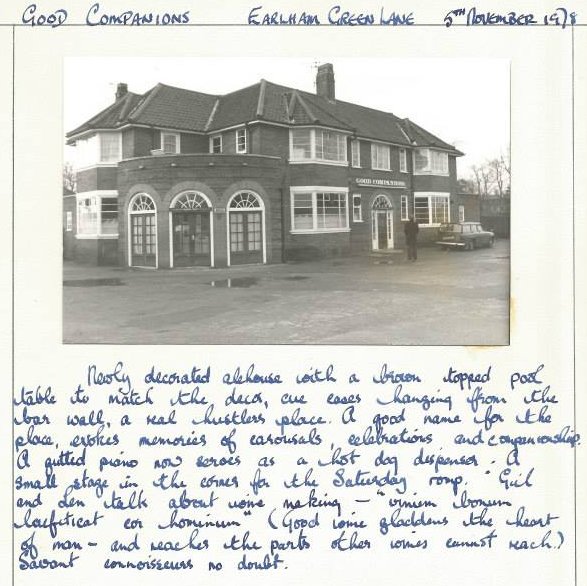 GOOD COMPANIONS EARLHAM GREEN LANE 5TH NOVEMBER 1978
GOOD COMPANIONS
Newly decorated alehouse with a brown topped pool
table to match the decor, cue cases hanging from the
bar wall, a real hustlers place. A good name for the
place, evokes memories of carousals, celebrations and companionship.
A gutted piano now serves as a hot dog dispenser. A
small stage in the corner for the Saturday romp. "Gil
and Len talk about wine making – "vinum bonum
laufiticat cor hominum" (Good wine gladdens the heart
of man – and reaches the parts other wines cannot reach.)
Savant connoisseurs no doubt.